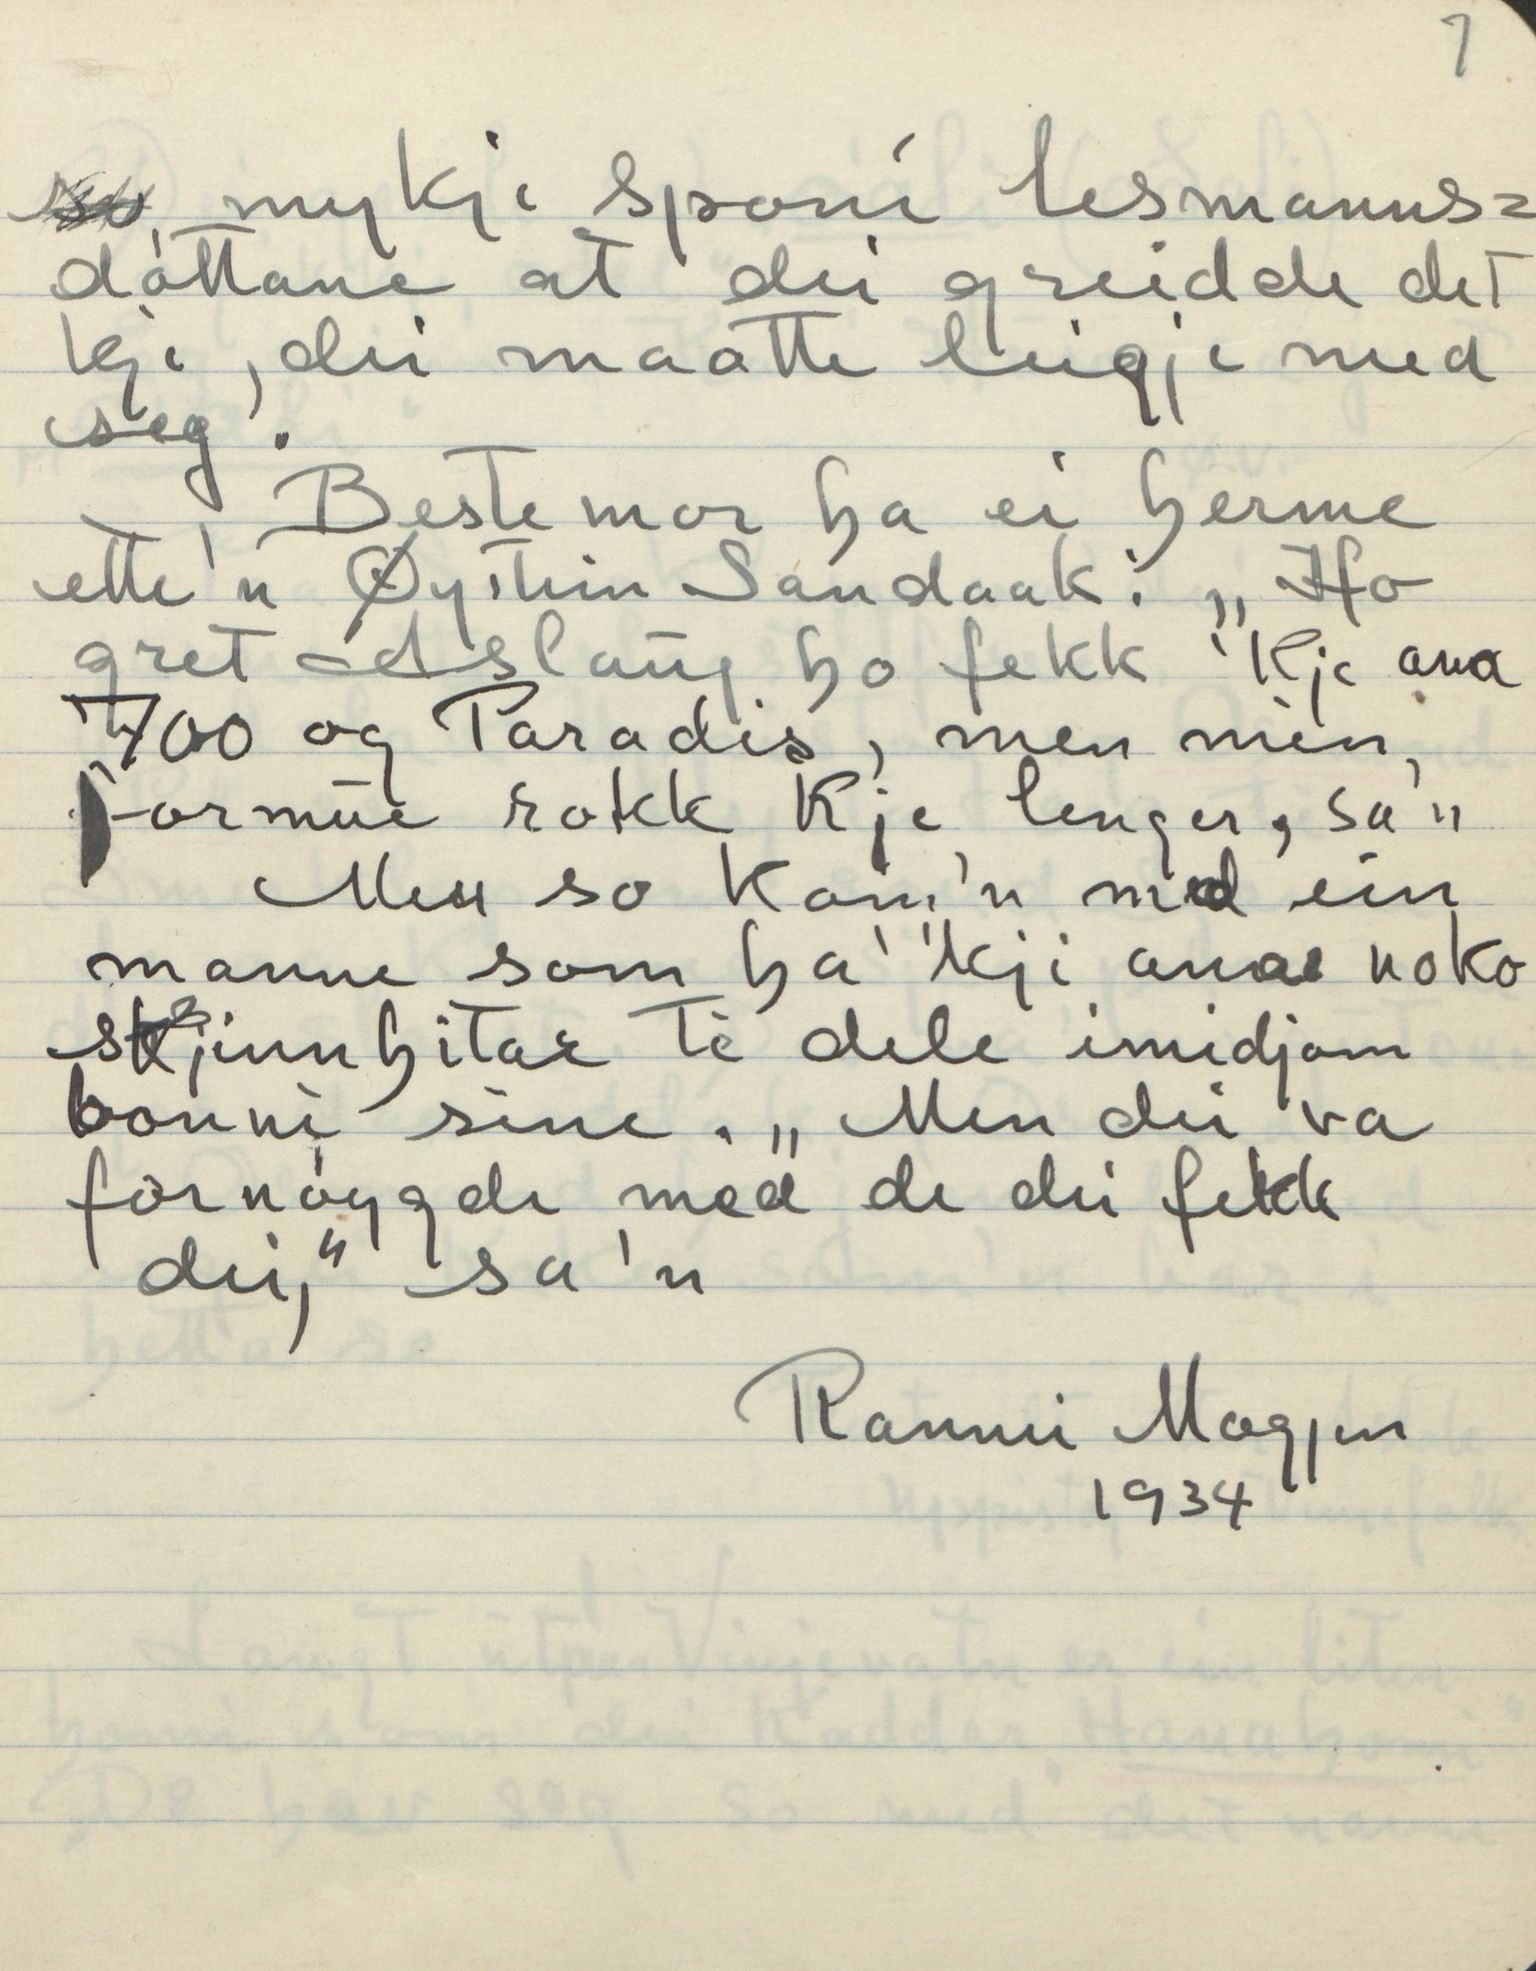 7
mykji sponi lesmanns=
dóttane at dei greidde det
kji, dei maatte leigje med
seg.
Bestemor ha ei herme
ette'n Øystein Sandaak: „Ho
gret Aslaug ho fekk 'kje ana
700 og Paradis, men min
formue rokk kje lenger, sa'n
Men so kom'n med ein
manne som ha' 'kji anae noko
skjinnhitar te dele imidjom
bonni sine. „Men dei va
fornøygde med de dei fekk
dei," sa'n
Rannei Mogjen
1934